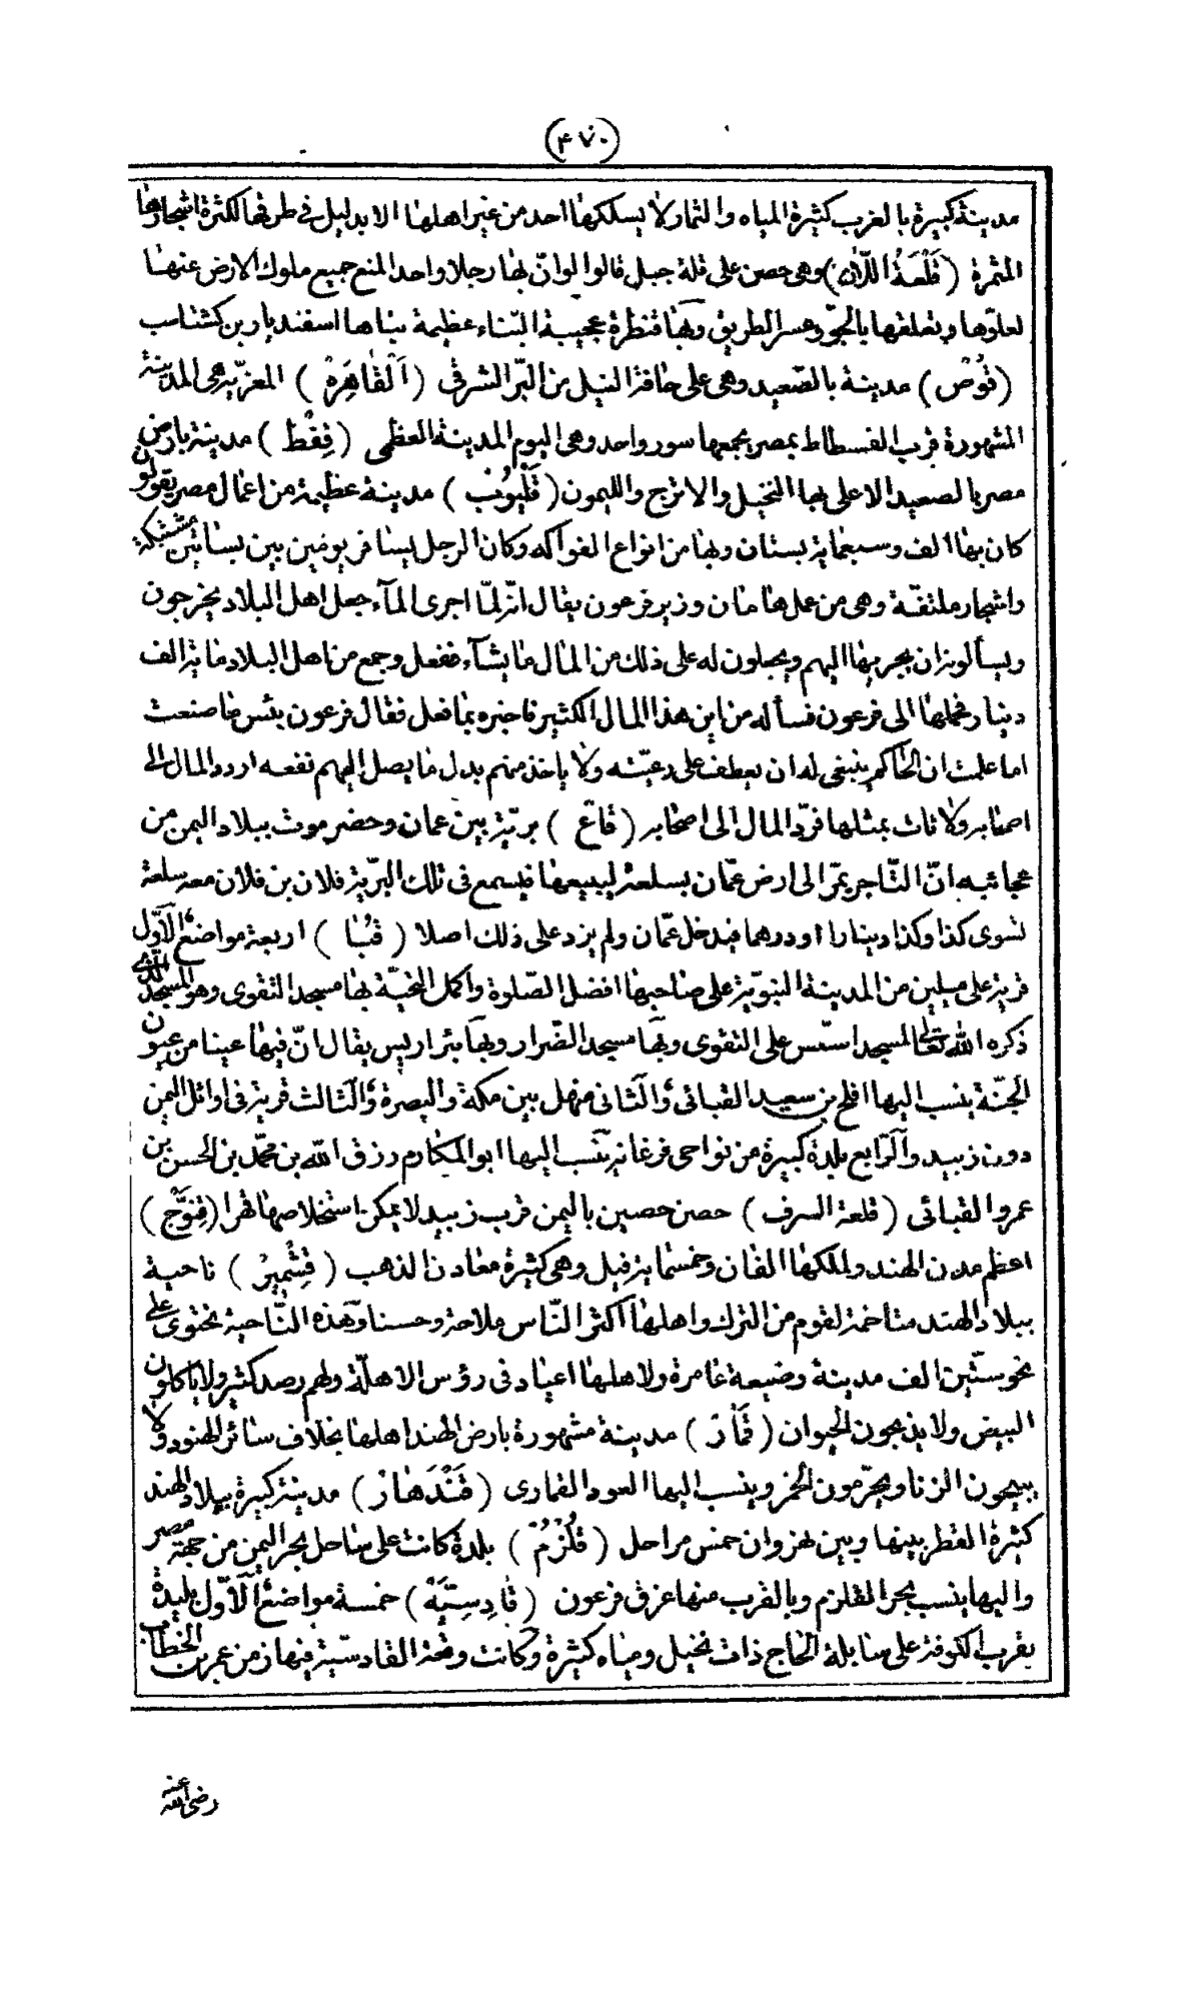 (٤٧٠)
مدينة كبيرة بالغرب كثيرة المياه والثمار لا يسلكها احد من غير اهلها الا بدليل في طرقها لكثرة اشجارها
المثمرة (قَلْعَةُ اللّان) وهى حصن على قلة جبل قالوا لو انّ بها رجلا واحدا لمنع جميع ملوك الارض عنها
لعلوّها وتعلقها بالجوّ وعسر الطريق وبها قنطرة عجيبة البناء عظيمة بناها اسفنديار بن كشتاسب
(قُوْص) مدينة بالصّعيد وهى على حافة النيل من البرّ الشرقى (اَلْقَاهِرَةْ) المعزّية هى المدينة
المشهورة قرب الفسطاط بمصر يجمعها سور واحد وهى اليوم المدينة العظمى (قِفْط) مدينة بارض
مصر بالصعيد الاعلى بها النخيل والاترج والليمون (قَلْيُوُب) مدينة عظيمة من اعمال مصر يقولون
كان بها الف وسبعماية بستان وبها من انواع الفواكه وكان الرجل يسافر يومين بين بساتين مشتبكة
واشجار ملتفّة وهى من عمل هامان وزير فرعون يقال انه لمّا اجرى المآء جعل اهل البلاد يخرجون
ويسألونه ان يجريها اليهم ويجعلون له على ذلك من المال ما يشآء ففعل وجمع من اهل البلاد ماية الف
دينار فحملها الى فرعون فسأله من اين هذا المال الكثير فاخبره بما فعل فقال فرعون بئس ما صنعت
اما علمت ان الحاكم ينبغى له ان يعطف على رعيّته ولا ياخذ منهم بدل ما يصل اليهم نفعه اردد المال الى
اصحابه ولا تات بمثلها فردّ المال الى اصحابه (قاع) بريّة بين عمان وحضرموت ببلاد اليمن من
عجائبه انّ التّاجر يمرّ الى ارض عمّان بسلعة ليبيعها فيسمع فى تلك البرّية فلان بن فلان معه سلعة
تسوى كذا وكذا دينارا او درهما فيدخل عمّان ولم يزد على ذلك اصلا (قُبَا) اربعة مواضع الاوّل
قرية على ميلين من المدينة النبويّة على صاحبها افضل الصّلوة واكمل التحيّة بها مسجد التقوى وهو المسجد الذى
ذكره الله تعالى لمسجد اسّس على التقوى وبها مسجد الضّرار وبها بئر اريس يقال انّ فيها عينا من عيون
الجنّة ينسب اليها افلح بن سعيد القبائى والثانى منهل بين مكة والبصرة والثالث قرية فى اوائل اليمن
دون زبيد والرّابع بلدة كبيرة من نواحى فرغانه ينسب اليها ابو المكارم رزق الله بن محمّد بن الحسن بن
عمرو القبائى (قلعة السرف) حصن حصين باليمن قرب زبيد لا يمكن استخلاصها قهرا (قِنَوَّج)
اعظم مدن الهند ولملكها الفان وخمسماية فيل وهى كثيرة معادن الذهب (قِشْمِيْر) ناحية
ببلاد الهند متاخمة لقوم من الترك واهلها اكثر النّاس ملاحة وحسنا وهذه النّاحية تحتوى على
نحو ستّين الف مدينة وضيعة عامرة ولاهلها اعياد فى رؤس الاهلّة ولهم رصد كثير ولا ياكلون
البيض ولا يذبحون الحيوان (قَمَار) مدينة مشهورة بارض الهند اهلها بخلاف سائر الهنود ولا
يبيحون الزنا ويحرّمون الخمر وينسب اليها العود القمارى (قَنْدَهَار) مدينة كبيرة ببلاد الهند
كثيرة القطر بينها وبين نهروان خمس مراحل (قُلْزُمْ) بلدة كانت على ساحل بحر اليمن من جهة مصر
واليها ينسب بحر القلزم وبالقرب منها غرق فرعون (قَادِسِيَّة) خمسة مواضع الاوّل بليدة
بقرب الكوفة على سابلة الحاج ذات نخيل ومياه كثيرة وكانت وقعة القادسيّة فيها زمن عمر بن الخطاب
رضى الله عنه